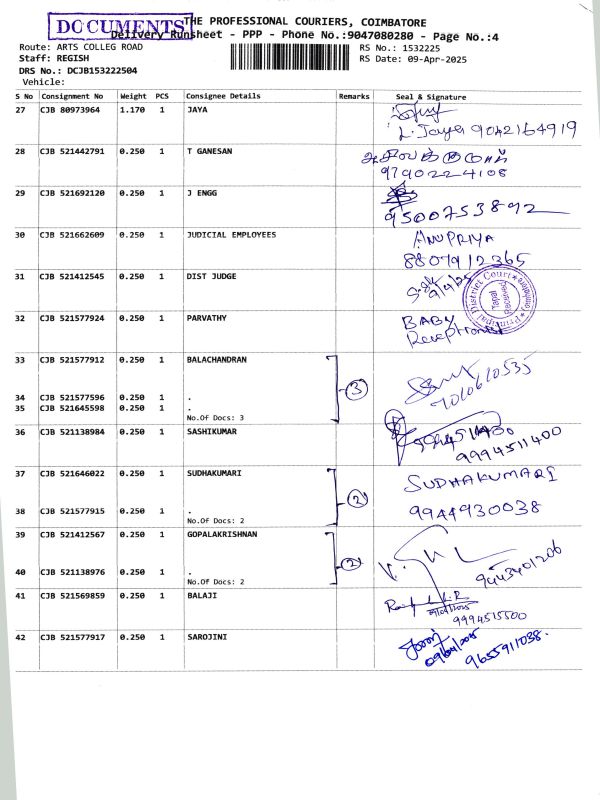 DOCUMENTS
THE PROFESSIONAL COURIERS, COIMBATORE
Delivery Runsheet - PPP - Phone No.:9047080280 - Page No.:4
Route: ARTS COLLEG ROAD
RS No.: 1532225
Staff: REGISH
RS Date: 09-Apr-2025
DRS No.: DCJB153222504
Vehicle:
S No Consignment No Weight PCS Consignee Details Remarks Seal & Signature
27 CJB 80973964 1.170 1 JAYA
L. Jaya 9042164919
28 CJB 521442791 0.250 1 T GANESAN
9790224108
29 CJB 521692120 0.250 1 J ENGG
9500753892
30 CJB 521662609 0.250 1 JUDICIAL EMPLOYEES ANUPRIYA
8807912365
31 CJB 521412545 0.250 1 DIST JUDGE
9/4/25
Principal District Court Coimbatore
Tapal Received
32 CJB 521577924 0.250 1 PARVATHY BABY
Receptionist
33 CJB 521577912 0.250 1 BALACHANDRAN
3
7010610535
34 CJB 521577596 0.250 1 .
35 CJB 521645598 0.250 1 .
No.Of Docs: 3
36 CJB 521138984 0.250 1 SASHIKUMAR
9994511400
37 CJB 521646022 0.250 1 SUDHAKUMARI SUDHAKUMARI
2
38 CJB 521577915 0.250 1 . 9944930038
No.Of Docs: 2
39 CJB 521412567 0.250 1 GOPALAKRISHNAN
2
40 CJB 521138976 0.250 1 . 9443401206
No.Of Docs: 2
41 CJB 521569859 0.250 1 BALAJI
09/04/2025
9994515500
42 CJB 521577917 0.250 1 SAROJINI
09/04/2025 9655911038.